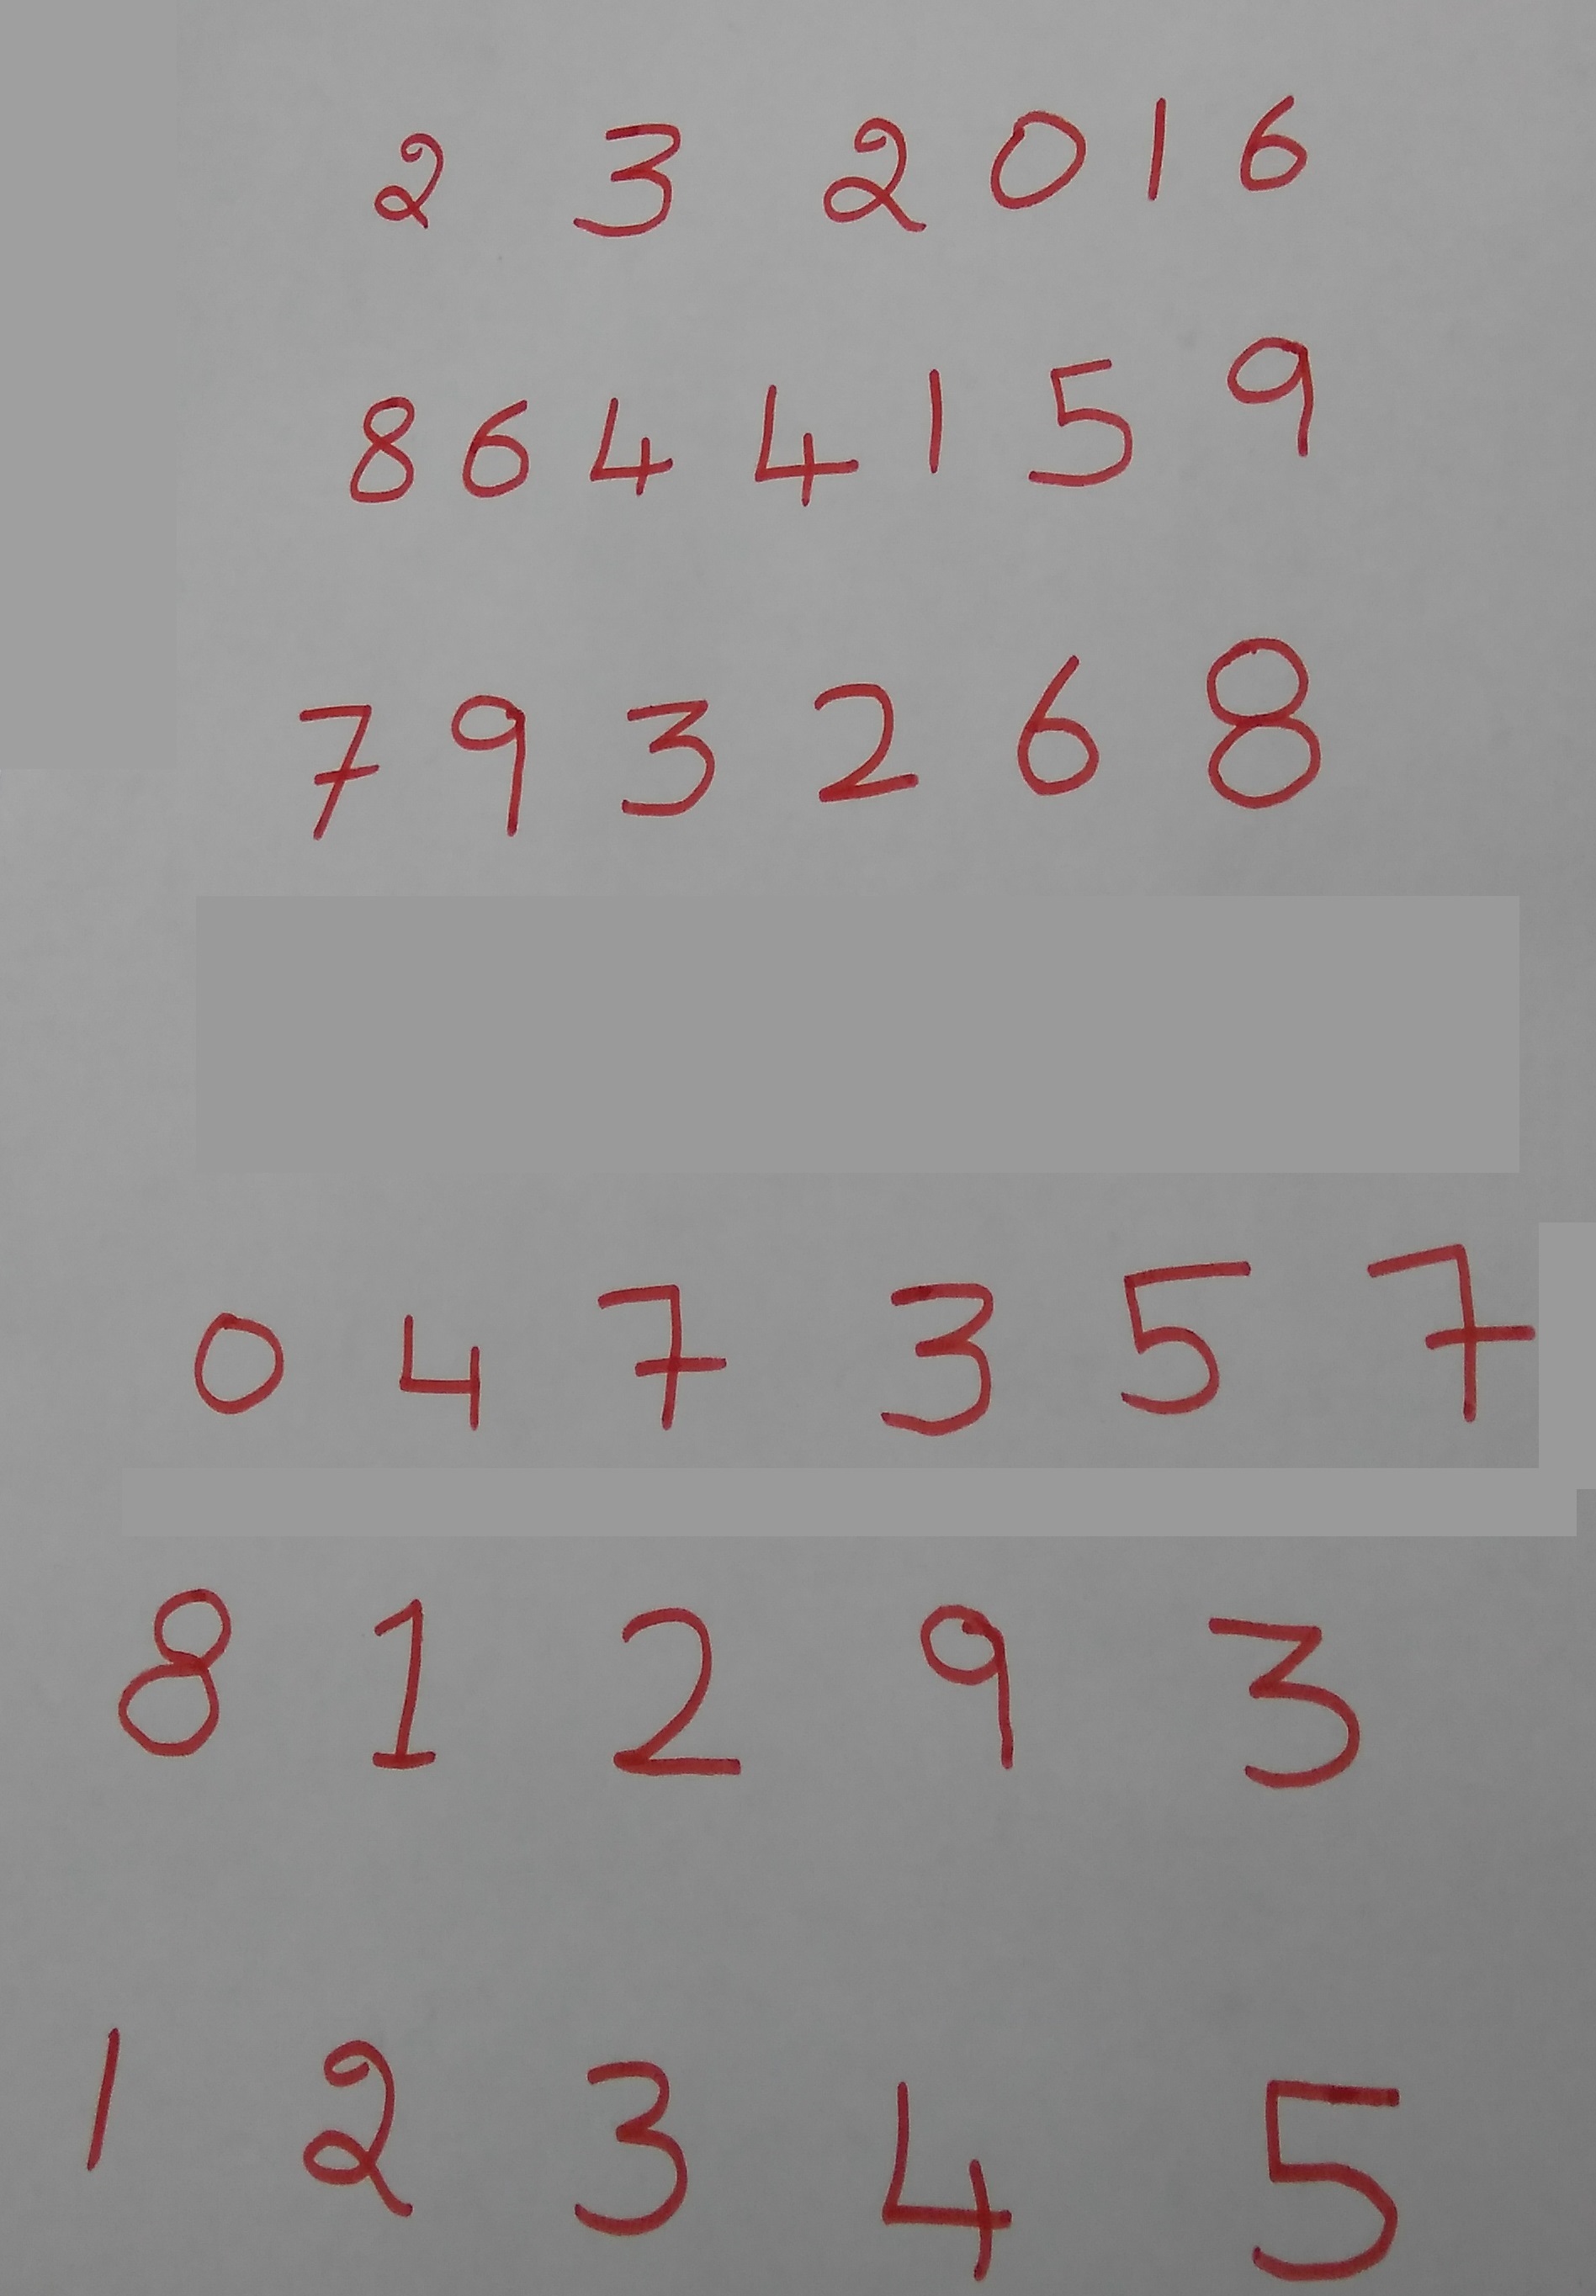 2 3 2 0 1 6
8 6 4 4 1 5 9
7 9 3 2 6 8
0 4 7 3 5 7
8 1 2 9 3
1 2 3 4 5